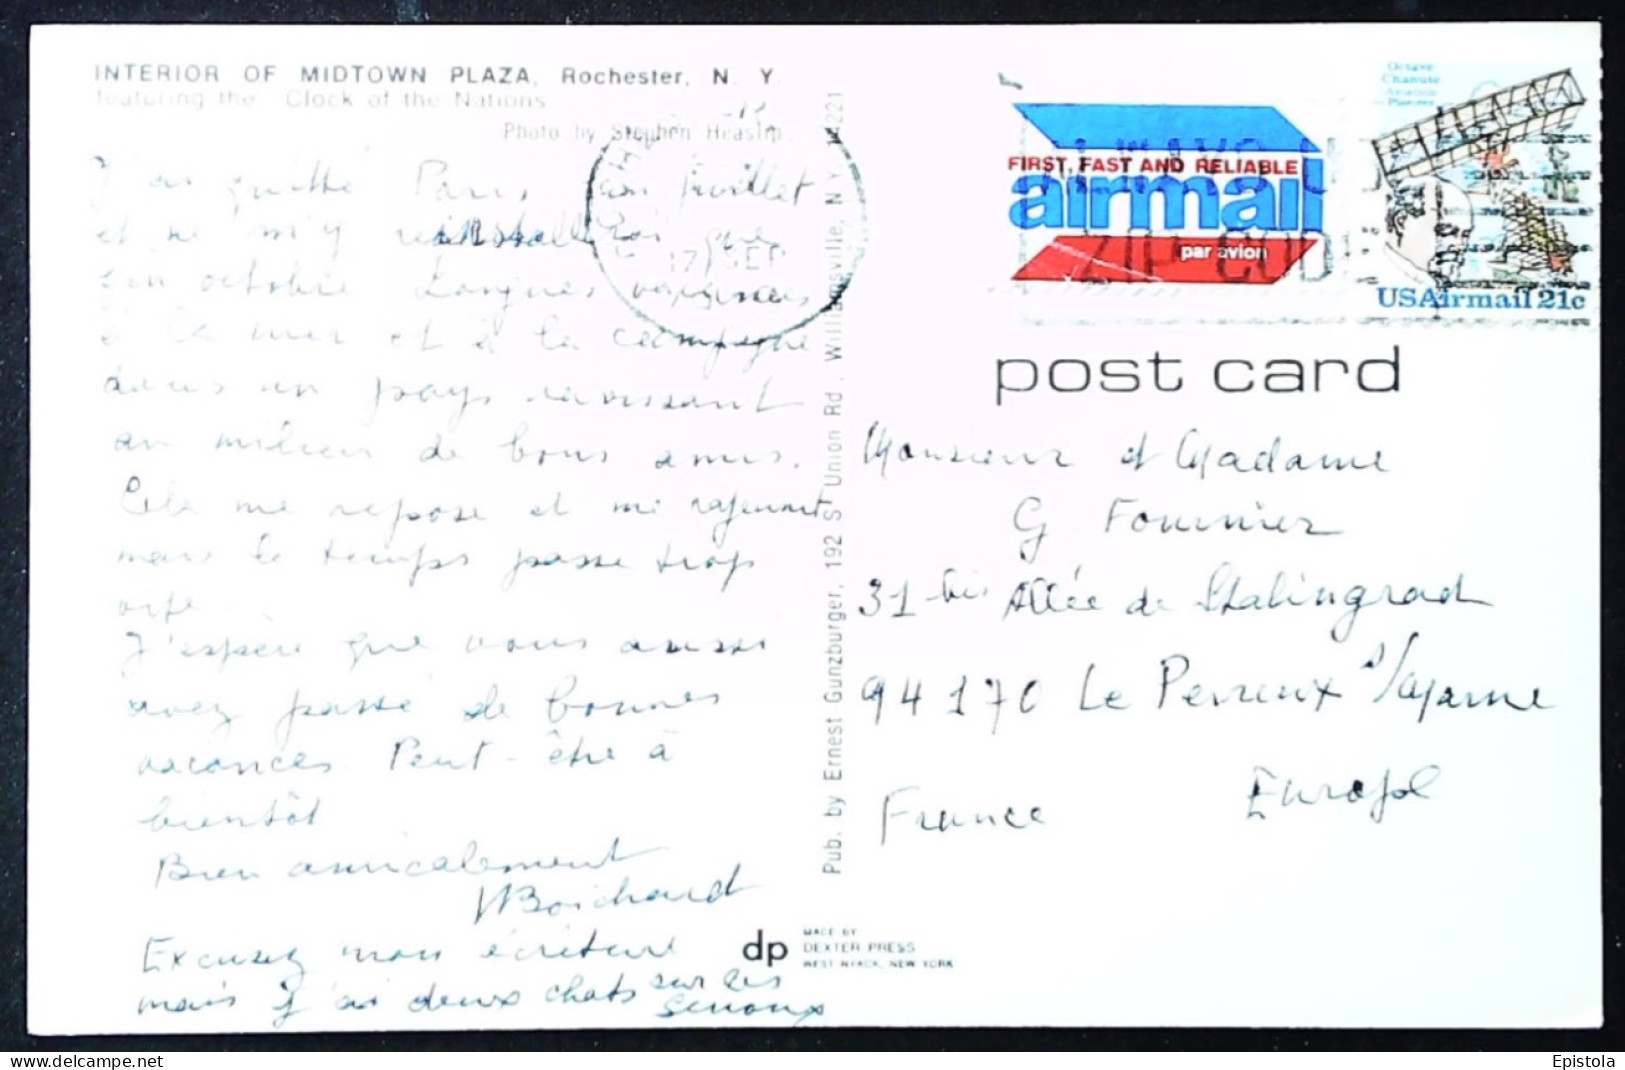 INTERIOR OF MIDTOWN PLAZA, Rochester, N. Y.
featuring the Clock of the Nations
Photo by Stephen Heaslip
J'ai quitté Paris en juillet
et ne m'y réinstallerai que
fin octobre Longues vacances
à la mer et à la campagne
dans un pays ravissant
au milieu de bons amis.
Cela me repose et me rajeunit
mais le temps passe trop
vite.
J'espère que vous aussi
avez passé de bonnes
vacances. Peut-être à
bientôt
Bien amicalement
Boichard
Excusez mon écriture
mais j'ai deux chats sur les
genoux
Pub. by Ernest Gunzburger, 192 St Union Rd. Williamsville, N. Y. 14221
dp
MADE BY
DEXTER PRESS
WEST NYACK, NEW YORK
17 SEP
FIRST, FAST AND RELIABLE
airmail
par avion
ZIP CODE
Octave
Chanute
Aviation
Pioneer
USAirmail 21c
post card
Monsieur et Madame
G Fournier
31 bis Allée de Stalingrad
94170 Le Perreux s/Marne
France Europe
MyPostcard.net
Epistola